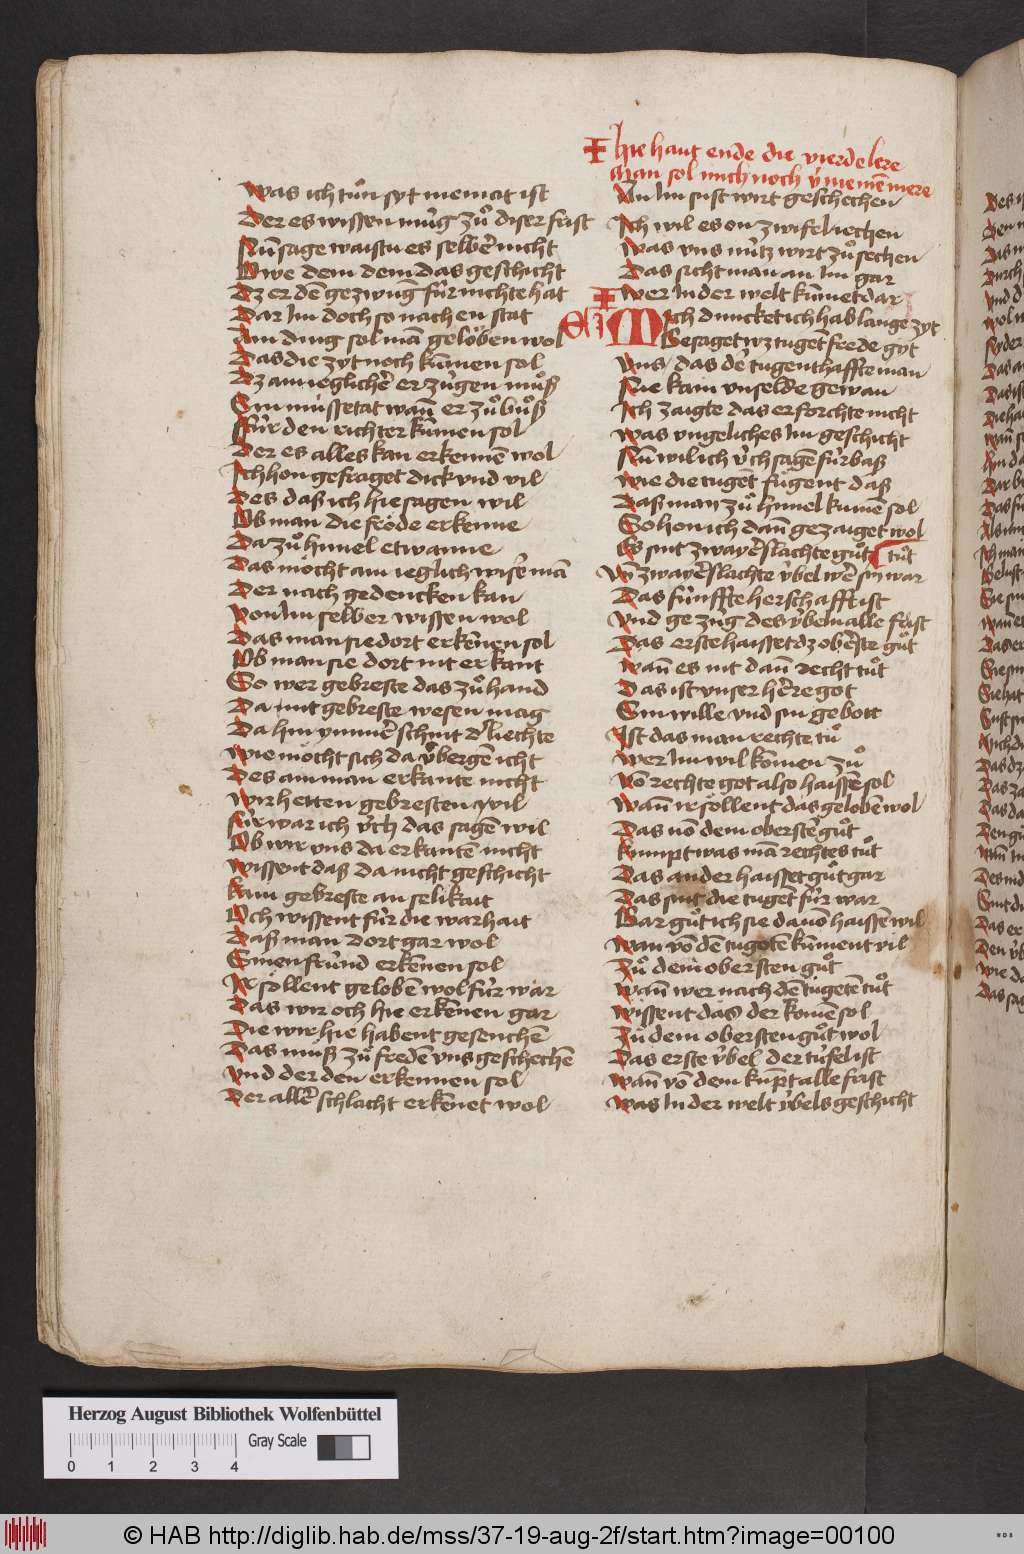 Was ich tuͦn syt niemat ist
Der es wissen mug zuͦ diser frist
Nun̄ sage waistu es selber nicht
Owe dem dem das geschicht
Dz er dē gezwūg fúr nichte hat
Dar Im doch so nachen stat
Ain ding sol mā geloben wol
Das die zyt noch kum̄en sol
Dz ain ieglicher erzúgen muͦß
Sin missetat wan̄ er zuͦ buͦß
Fúr den richter kum̄en sol
Der es alles kan erkennē wol
Ich hon gefraget dick vnd vil
Des daß ich hie sagen wil
Ob man die fröde erkenne
Da zuͦ himel etwanne
Das möcht ain ieglich wiser mā
Der nach gedencken kan
Von Im selber wissen wol
Das man sie dort erken̄en sol
Ob man sie dort nit erkant
So wer gebreste das zuͦ hand
Da mit gebreste wesen mag
Da hin ym̄er schint dʼ liechte
Wie möcht sich da v́bergē icht
Des ain man erkante nicht
Wir hetten gebresten vil
Fúr war ich v́ch das sagē wil
Ob wir vns da erkantē nicht
Wissent daß da nicht geschicht
Kain gebreste an selikait
Och wissent fúr die warhait
Daß man dort gar wol
Sinen frúnd erken̄en sol
Ir söllent gelobē wol fúr war
Das wir och hie erken̄en gar
Die wir hie habent gesenchē
Das muß zuͦ fredē vns geschechē
Vnd der den erkennen sol
Der aller schlacht erken̄et wol
Hie haut ende die vierde lere
Man sol mich noch v́nemē mere
An Im sust wirt geschechen
Ich wil es on zwifel iechen
Was vns nútz wirt zuͦ sechen
Das sicht man an Im gar
Wer In der welt kum̄et dar
Mich duncket ich hab lange zyt
Gesaget wz tugēt frede gyt
Vns / das der tugenthaffte man
Nie kain vnselde gewan
Ich zaigte das er forchte nicht
Was vngeliches Im geschicht
Nun̄ wil ich v́ch sagē fúrbaß
Wie die tugēt fúgent daß
Daß man zuͦ himel kumē sol
So hon ich dan̄ gezaiget wol
Es sint zwayer slachte guͦte tuͦt
Vn̄ zwayer slachte v́bel wer sin war
Das fúnffte herschafft ist
Vnd gezúg des v́beln alle frist
Das erste haisset dz oberste guͦt
Wan̄ es nit dan̄ recht tuͦt
Das ist vnser herre got
Sin wille vnd sin gebott
Ist das man rechte tuͦ
Wer Im wil kōmen zuͦ
Vō rechte got also haissē sol
Wan̄ ir söllent das gelobē wol
Das vō dem oberstē guͦt
Kumpt was mā rechtes tuͦt
Das ander haisset guͦt gar
Das sint die tugēt fúr war
Gar guͦt ich sie dauō haissē wil
Wan vō dē tugetē kum̄ent vil
Zuͦ dem obersten guͦt
Wan̄ wer nach dē tugetē tuͦt
Wissent das der komē sol
Zuͦ dem obersten guͦt wol
Das erste v́bel der túfel ist
Wan̄ vō dem kumpt alle frist
Was In der welt v́bels geschicht
Herzog August Bibliothek Wolfenbüttel
Gray Scale
0 1 2 3 4
© HAB http://diglib.hab.de/mss/37-19-aug-2f/start.htm?image=00100